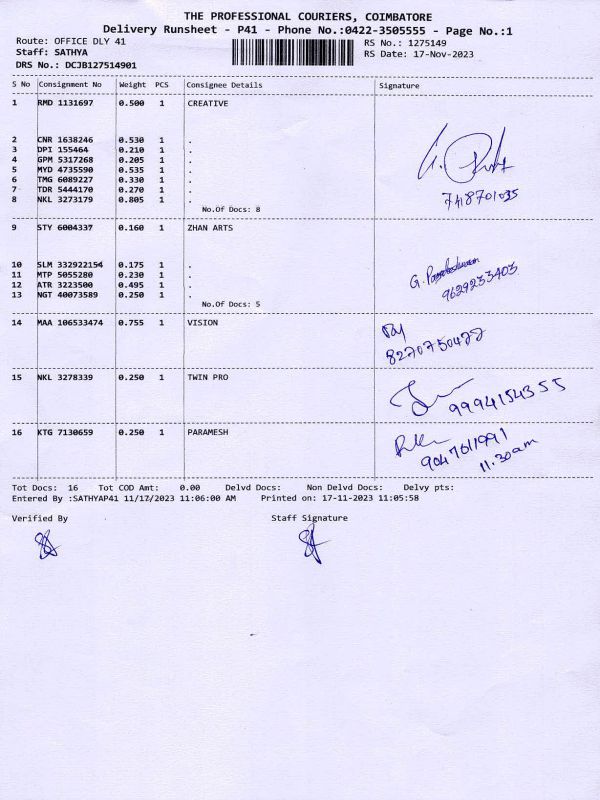 THE PROFESSIONAL COURIERS, COIMBATORE
Delivery Runsheet - P41 - Phone No.:0422-3505555 - Page No.:1
Route: OFFICE DLY 41 RS No.: 1275149
Staff: SATHYA RS Date: 17-Nov-2023
DRS No.: DCJB127514901
S No Consignment No Weight PCS Consignee Details Signature
1 RMD 1131697 0.500 1 CREATIVE
2 CNR 1638246 0.530 1 .
3 DPI 155464 0.210 1 .
4 GPM 5317268 0.205 1 .
5 MYD 4735590 0.535 1 .
6 TMG 6089227 0.330 1 .
7 TDR 5444170 0.270 1 .
8 NKL 3273179 0.805 1 .
7418701035
No.Of Docs: 8
9 STY 6004337 0.160 1 ZHAN ARTS
10 SLM 332922154 0.175 1 .
11 MTP 5055280 0.230 1 .
12 ATR 3223500 0.495 1 .
13 NGT 40073589 0.250 1 .
9629233403
No.Of Docs: 5
14 MAA 106533474 0.755 1 VISION
8270750488
15 NKL 3278339 0.250 1 TWIN PRO
9994154355
16 KTG 7130659 0.250 1 PARAMESH
9047611991
11.30am
Tot Docs: 16 Tot COD Amt: 0.00 Delvd Docs: Non Delvd Docs: Delvy pts:
Entered By :SATHYAP41 11/17/2023 11:06:00 AM Printed on: 17-11-2023 11:05:58
Verified By Staff Signature